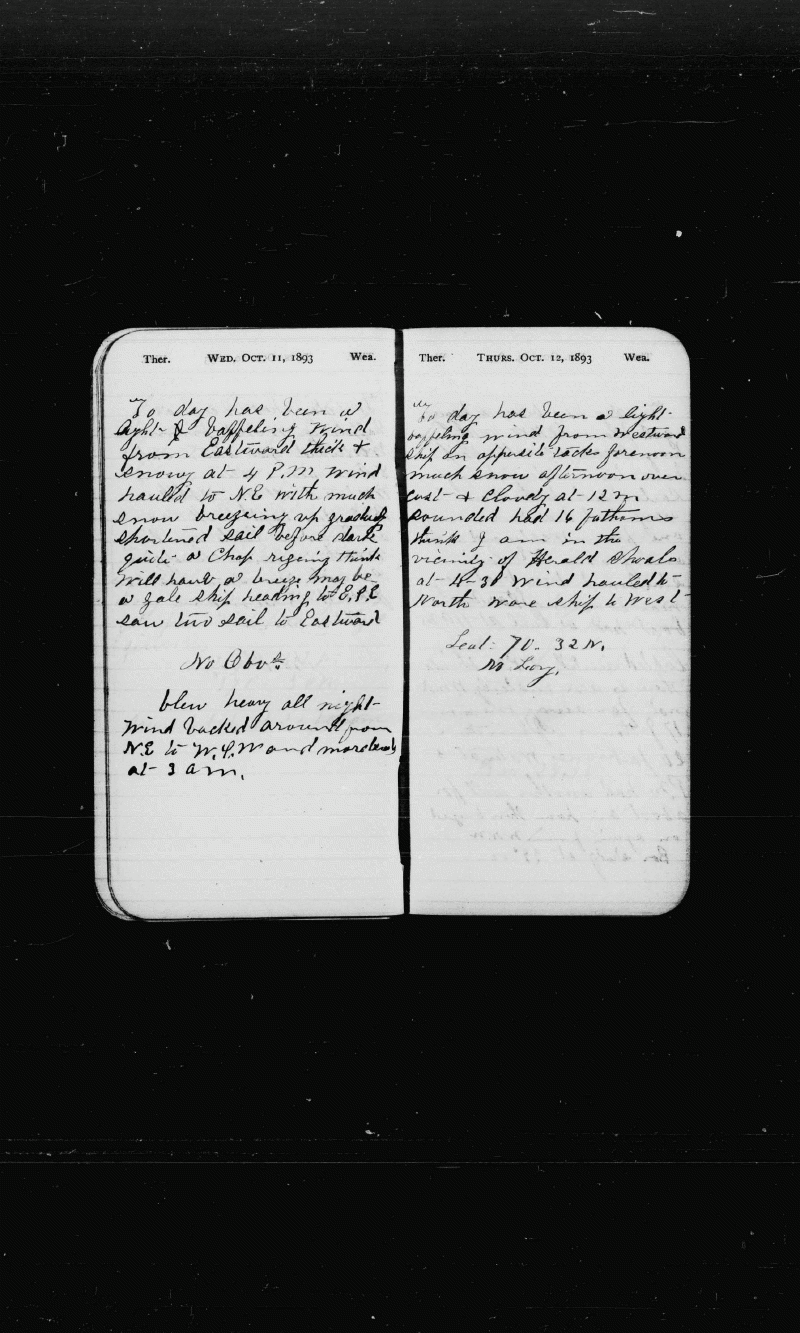 Ther. WED. OCT. 11, 1893 Wea.
To day has been a
light & baffeling wind
from Eastward thick &
snowy at 4 P.M wind
hauld to N.E with much
snow breezeing up gradualy
shortened sail before dark
quite a Chop rigeing think
will have a breeze may be
a gale ship heading to E.S.E
saw two sail to Eastward
No Obvs.
blew heavy all night
wind backed around from
N.E to W.S.W and
at 3 am.
Ther. THURS. OCT. 12, 1893 Wea.
To day has been a light
baffeling wind from westward
ship on opposite tacks forenoon
much snow afternoon over
cast & cloudy at 12 m
sounded had 16 fathoms
think I am in the
vicinity of Herald Shoals
at 4-30 wind hauled to
North wore ship to West
Leat. 70. 32 N.
No Long.